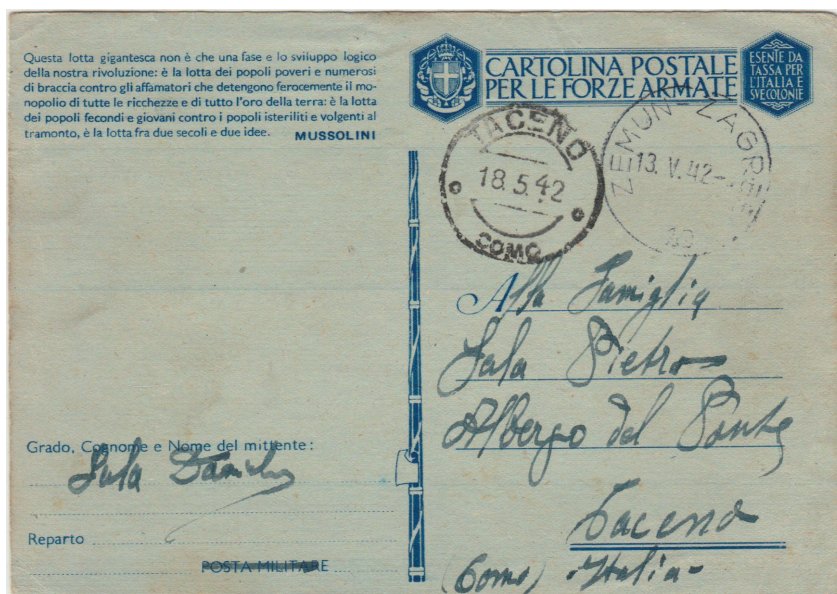 Questa lotta gigantesca non è che una fase e lo sviluppo logico
della nostra rivoluzione: è la lotta dei popoli poveri e numerosi
di braccia contro gli affamatori che detengono ferocemente il mo-
nopolio di tutte le ricchezze e di tutto l'oro della terra: è la lotta
dei popoli fecondi e giovani contro i popoli isteriliti e volgenti al
tramonto, è la lotta fra due secoli e due idee. MUSSOLINI
CARTOLINA POSTALE
PER LE FORZE ARMATE
ESENTE DA
TASSA PER
L'ITALIA E
SVE COLONIE
TACENO
18.5.42
COMO
ZEMUN - ZAGREB
13. V. 42
Alla Famiglia
Sala Pietro
Albergo del Ponte
Taceno
(Como) - Italia -
Grado, Cognome e Nome del mittente:
Sala
Reparto
POSTA MILITARE